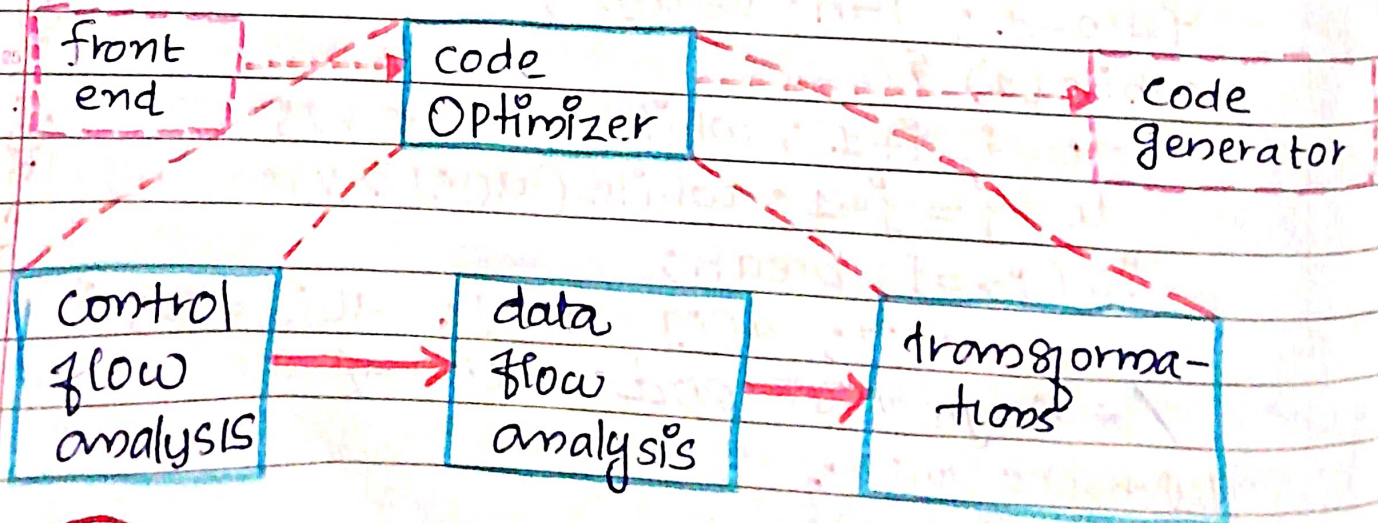 front
end
code
Optimizer
code
generator
control
flow
analysis
data
flow
analysis
transforma-
tions